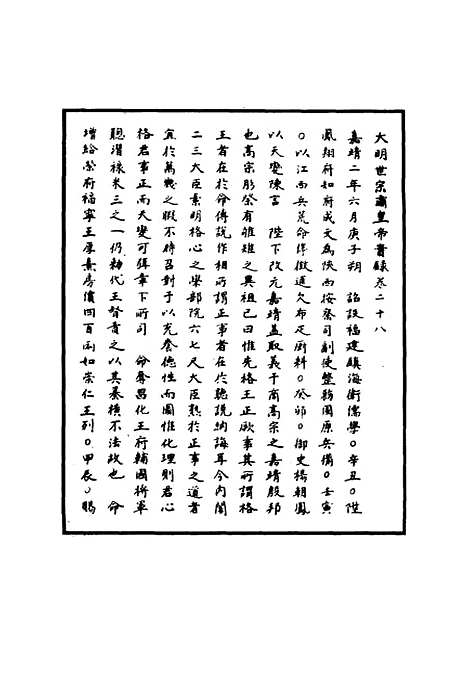 大明世宗肅皇帝實錄卷二十八
嘉靖二年六月庚子朔　詔設福建鎮海衛儒學○辛丑○陞
鳳翔府知府成文為陝西按察司副使整飭固原兵備○壬寅
○以江西兵荒命停徵逋欠布疋廚料○癸卯○御史楊朝鳳
以天變陳言　陛下改元嘉靖蓋取義于商高宗之嘉靖殷邦
也高宗肜祭有雊雉之異祖己曰惟先格王正厥事其所謂格
王者在於命傅說作相所謂正事者在於聽說納誨耳今內閣
二三大臣素明格心之學部院六七尺大臣熟於正事之道者
宜於萬幾之暇不時召對于以充養德性而圖惟化理則君心
格君事正而天變可弭章下所司　命奪昌化王府輔國將軍
聰潛祿米三之一仍勑代王督責之以其暴橫不法故也　命
增給榮府福寧王厚熹房價四百兩如崇仁王列○甲辰○賜